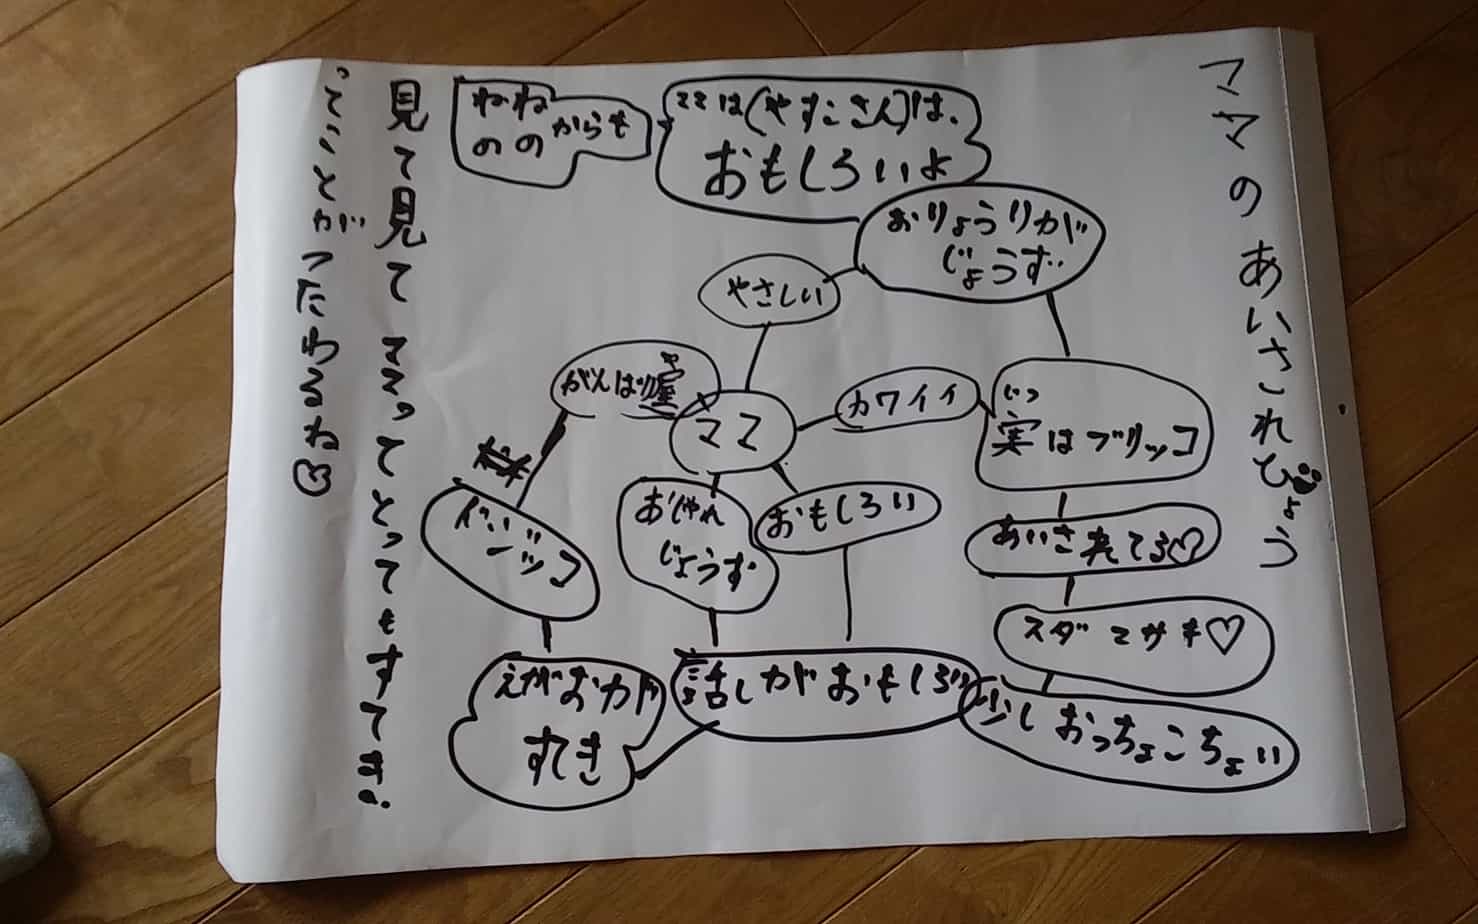 ママのあいされひょう
ママは(やすこさん)は、
おもしろいよ
ねね
のの
からも
おりょうりが
じょうず
やさしい
がんばり屋
や
ママ
カワイイ
じつ
実はブリッコ
おしゃれ
じょうず
おもしろい
あいされてる♡
スダマサキ♡
少しおっちょこちょい
話しがおもしろい
えがおが
すてき
見て見てママってとってもすてき!
ってことがつたわるね